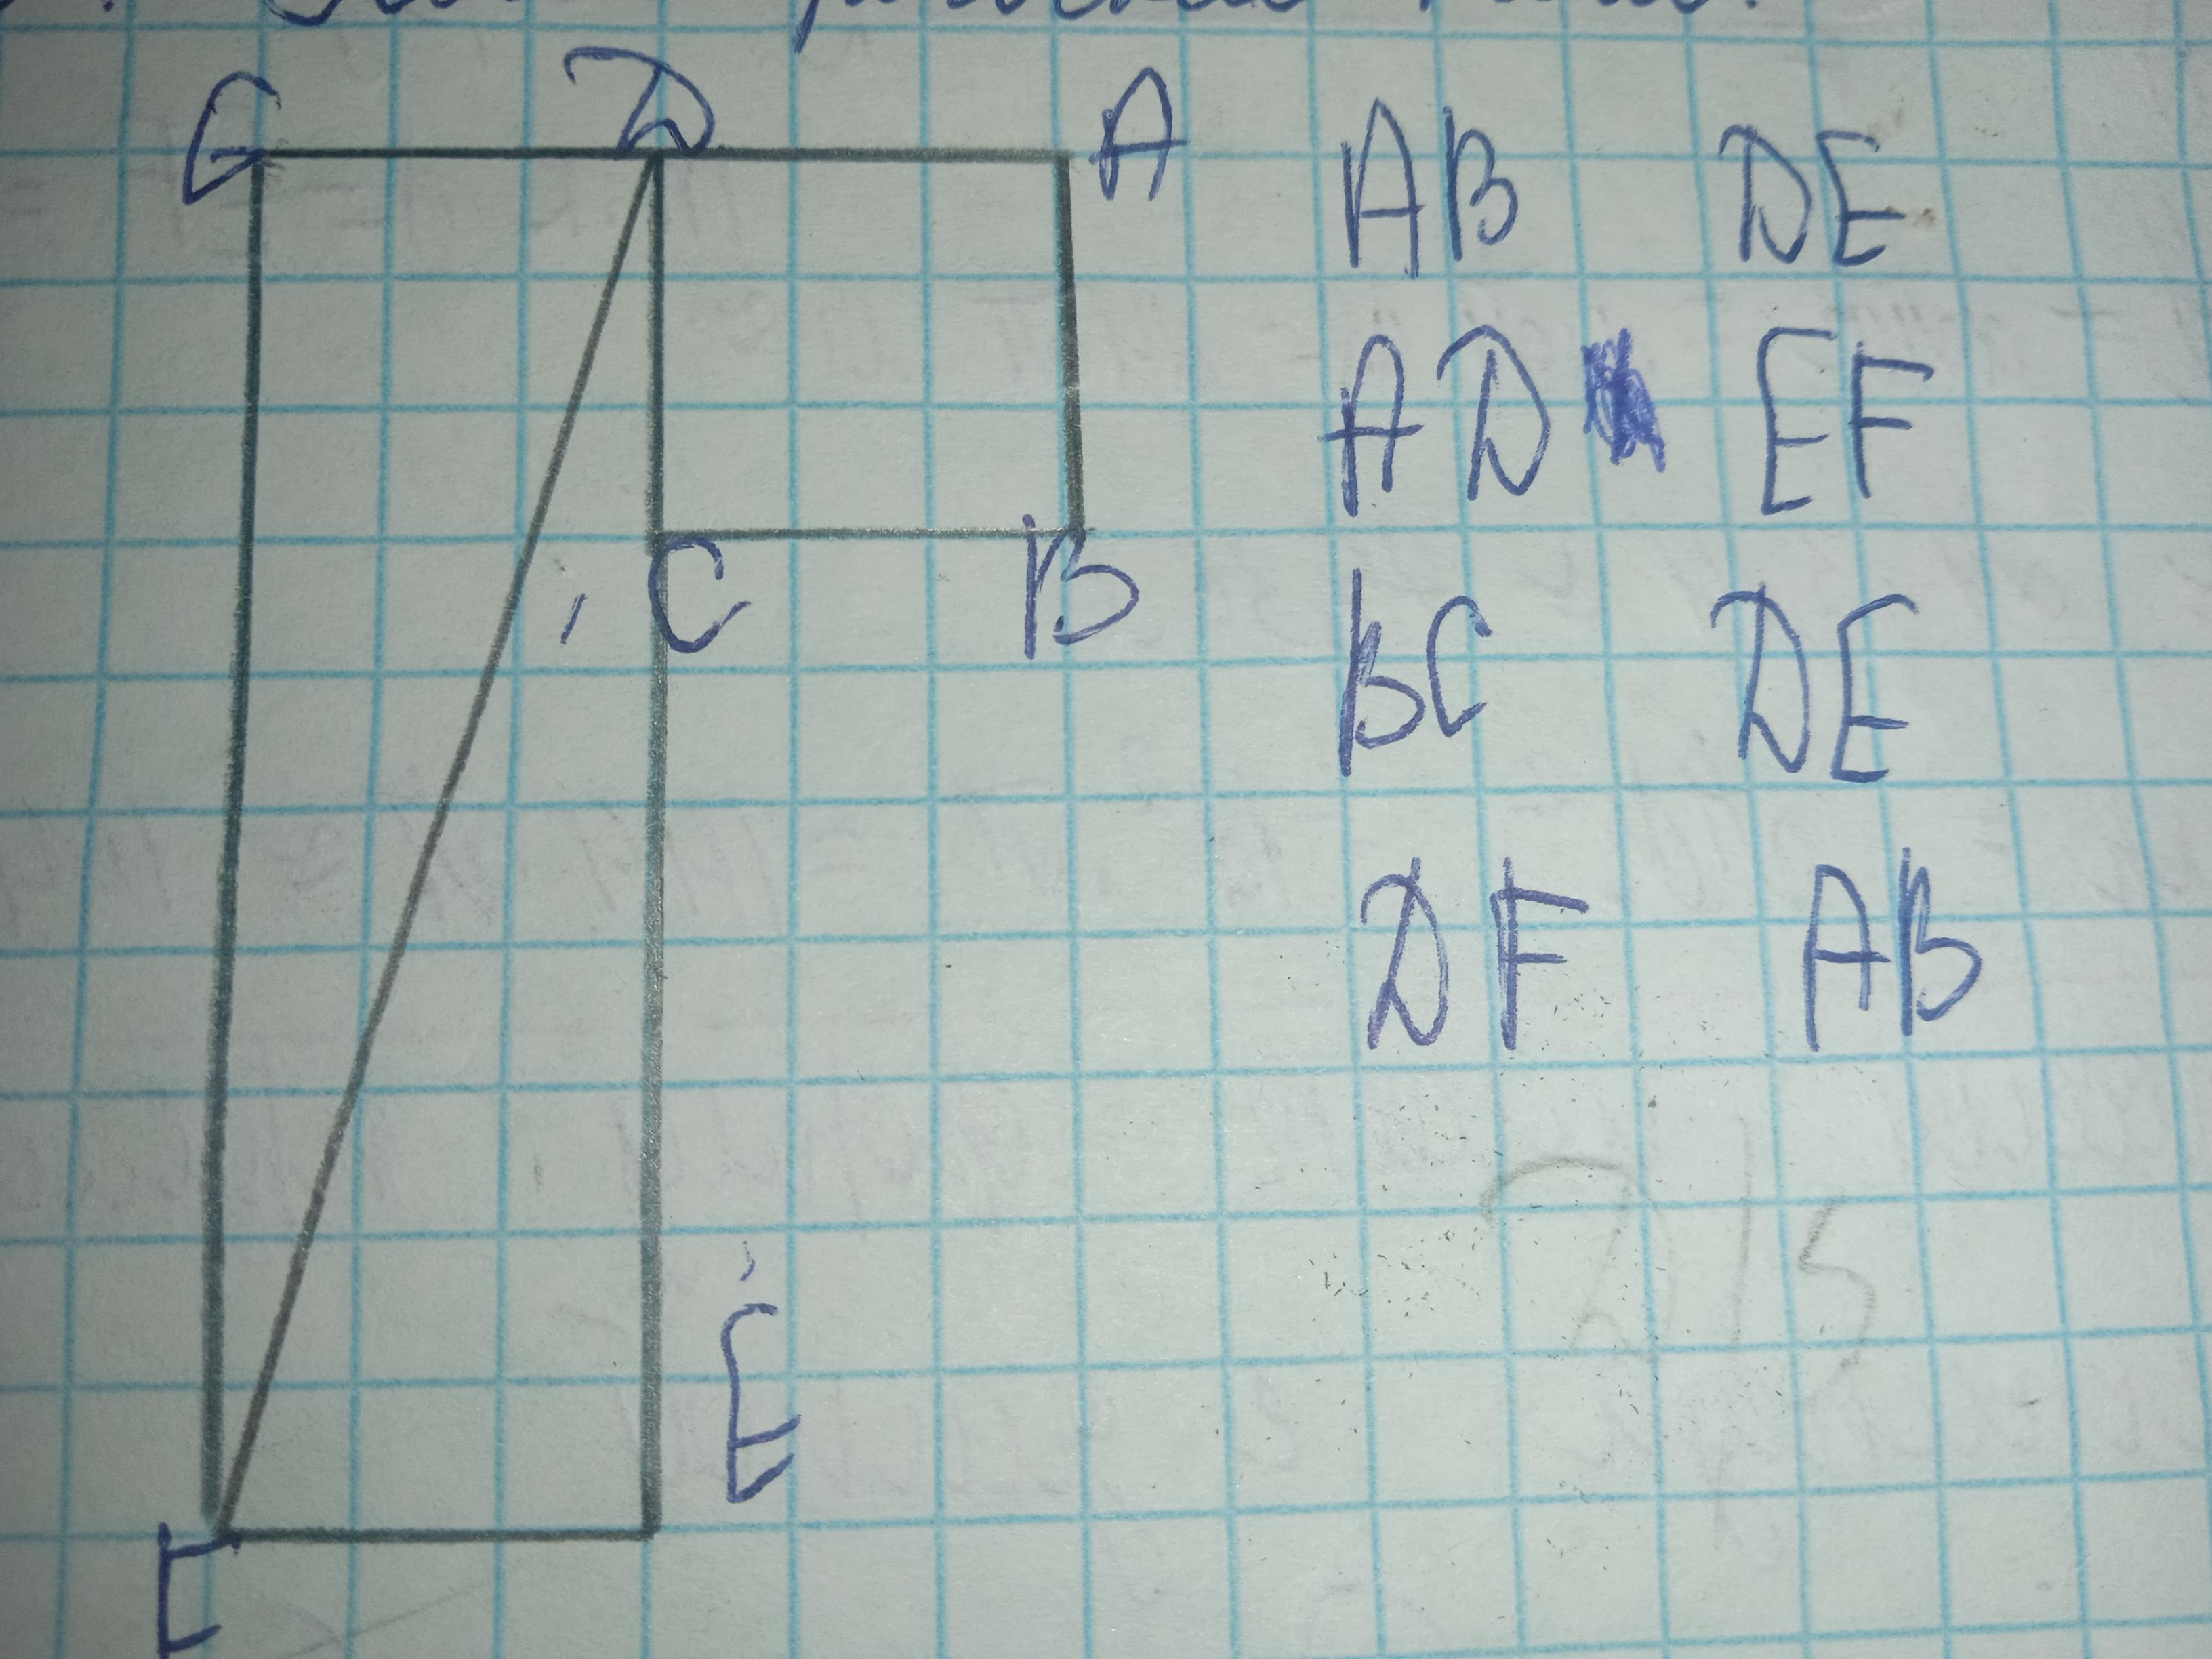 G D A AB DE
AD EF
C B BC DE
DF AB
E
F